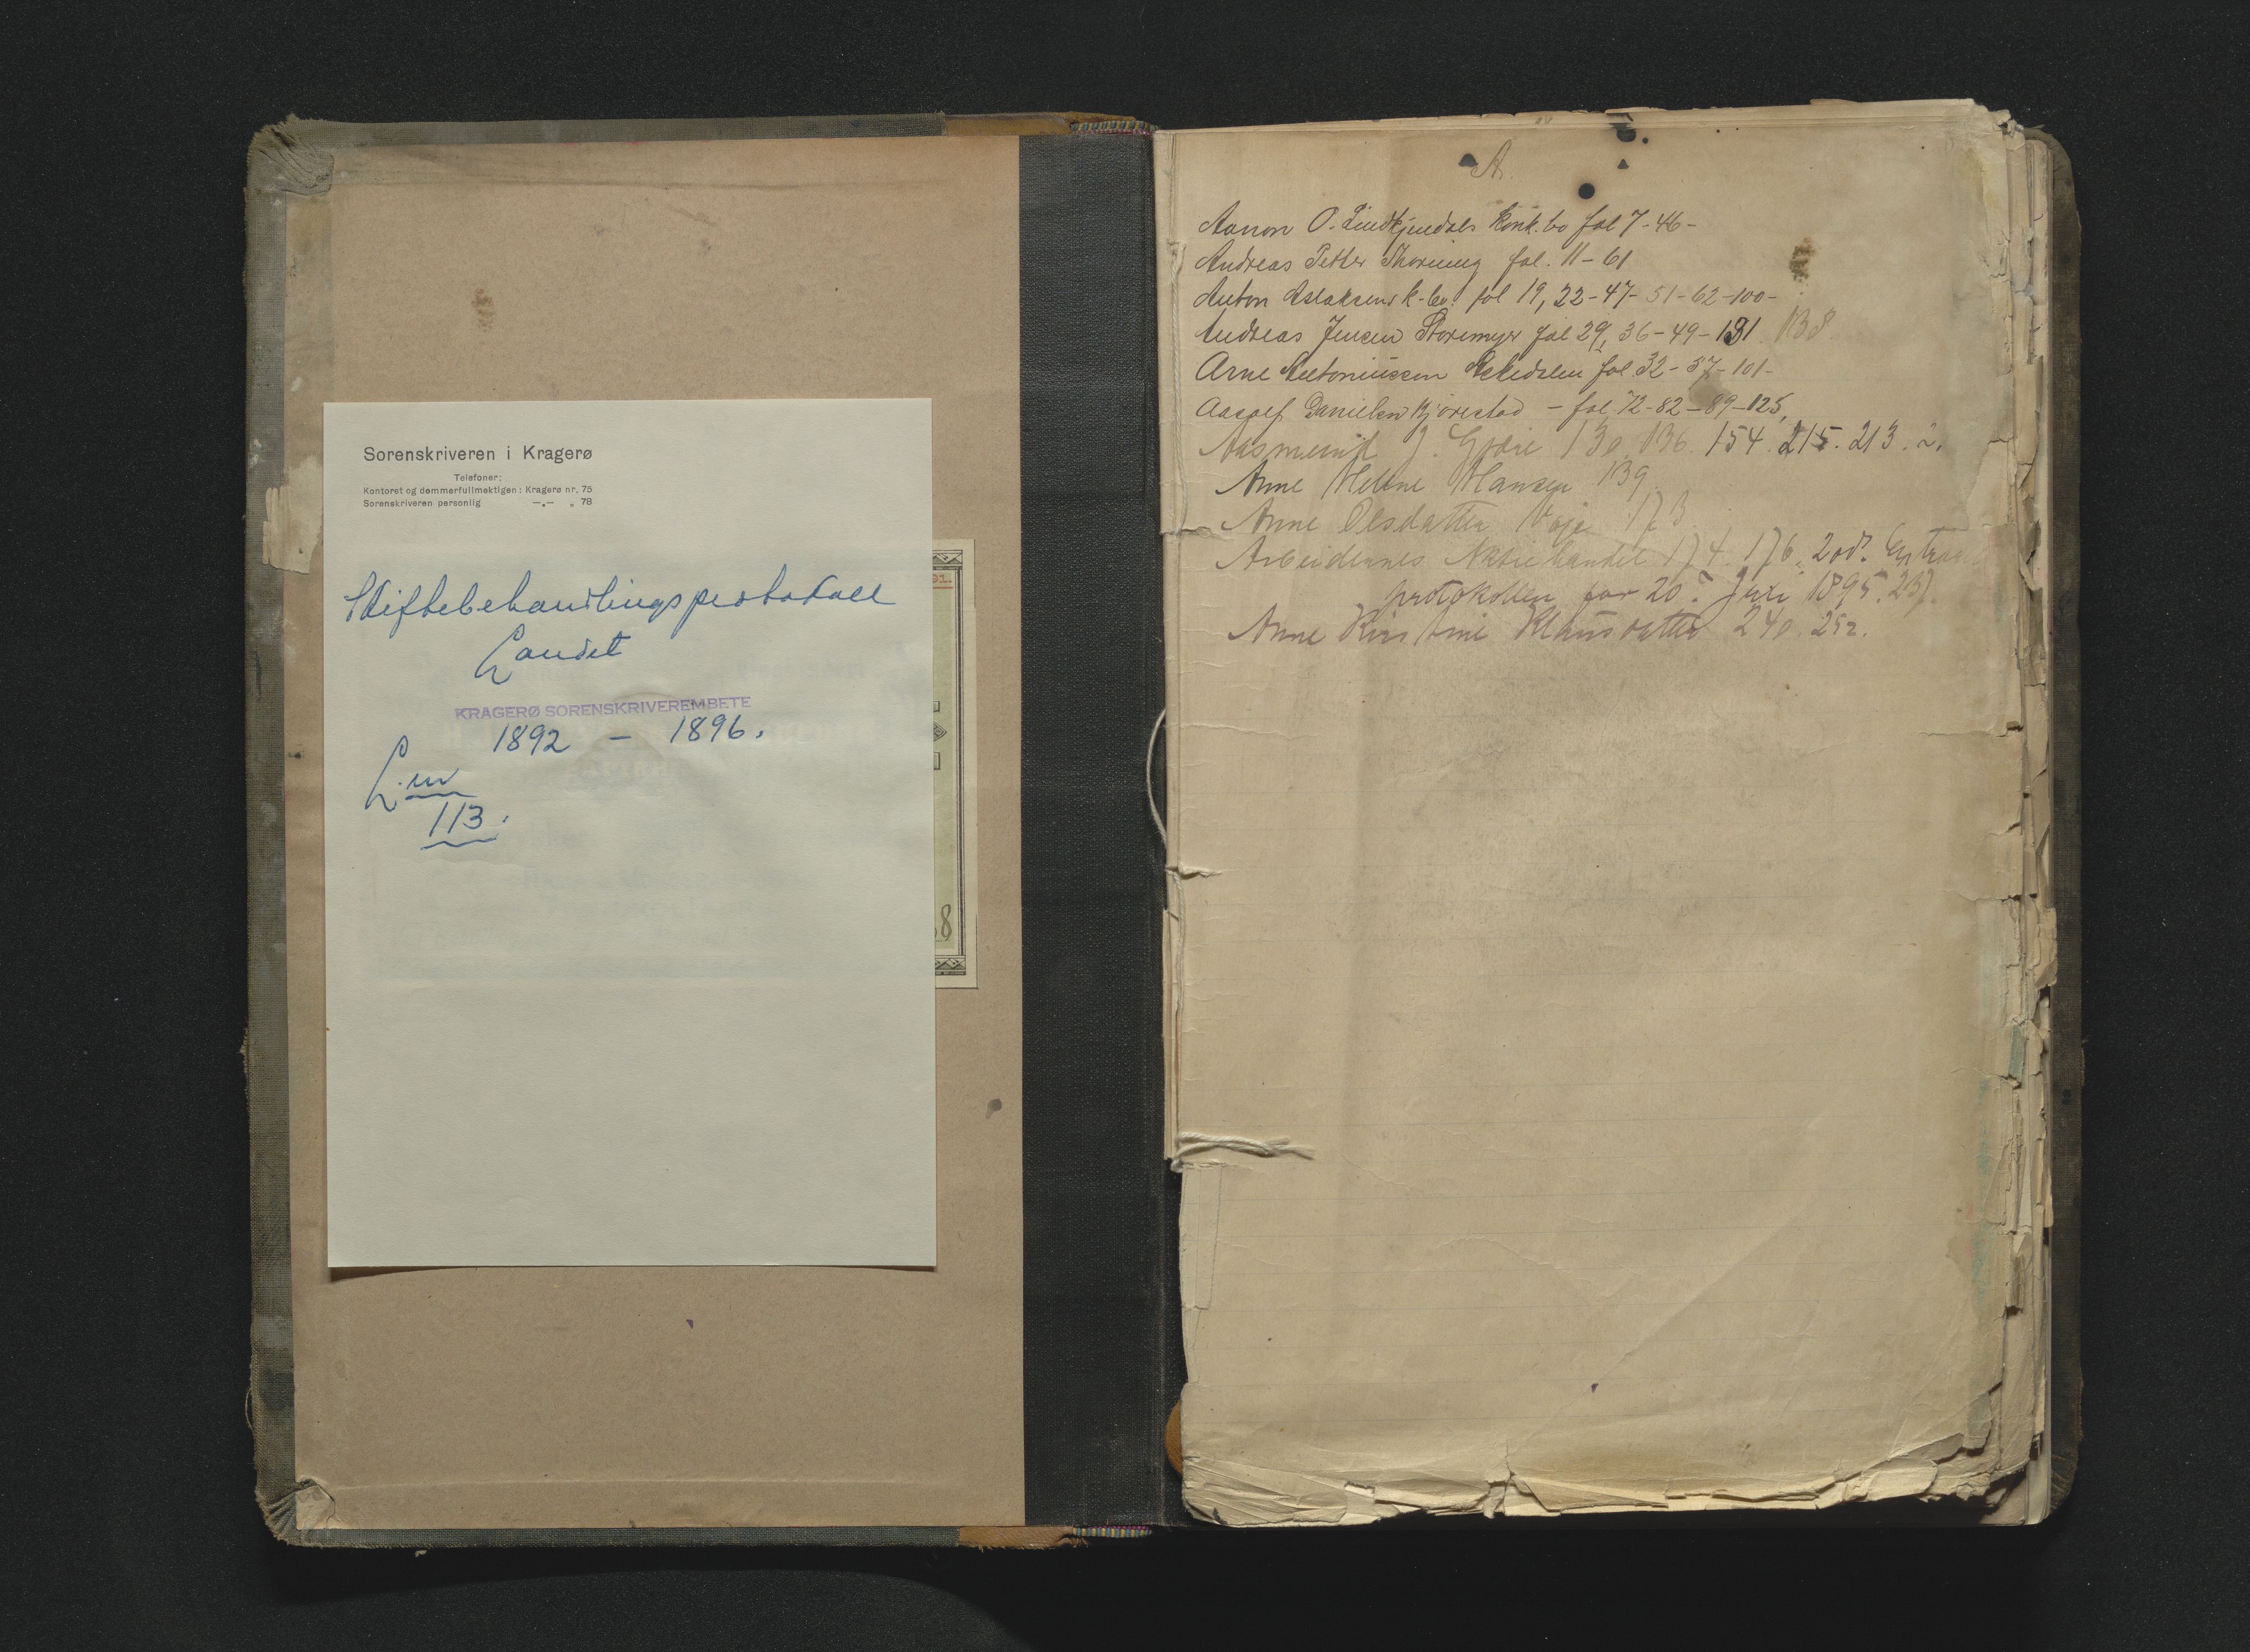 Sorenskriveren i Kragerø
Telefoner:
Kontoret og dommerfullmektigen: Kragerø nr. 75
Sorenskriveren personlig —„— „ 78
Skiftebehandlingsprotokoll
Landet
KRAGERØ SORENSKRIVEREMBETE
1892 – 1896.
L.
113.
01.
8
A.
Aanon O. Lindkjendals konk.bo fol 7-46-
Andreas Petter Thorning fol. 11-61
Anton Aslaksens k-bo. fol 19, 22-47-51-62-100-
Andreas Jensen Storemyr fol 29, 36-49-131 138
Arne Antoniussen fol 32-57-101-
Aasolf Danielsen Bjørestad - fol. 72-82-89-125,
Aasmund J. 130. 136. 154. 215. 213. 2.
Anne Helene Hansen 139
Anne Olsdatter 173
Arbeidernes Aktiehandel 174. 176. 208. Extra
protokollen for 20. Juli 1895. 237.
Anne Kirstine Klausdatter 240. 252.